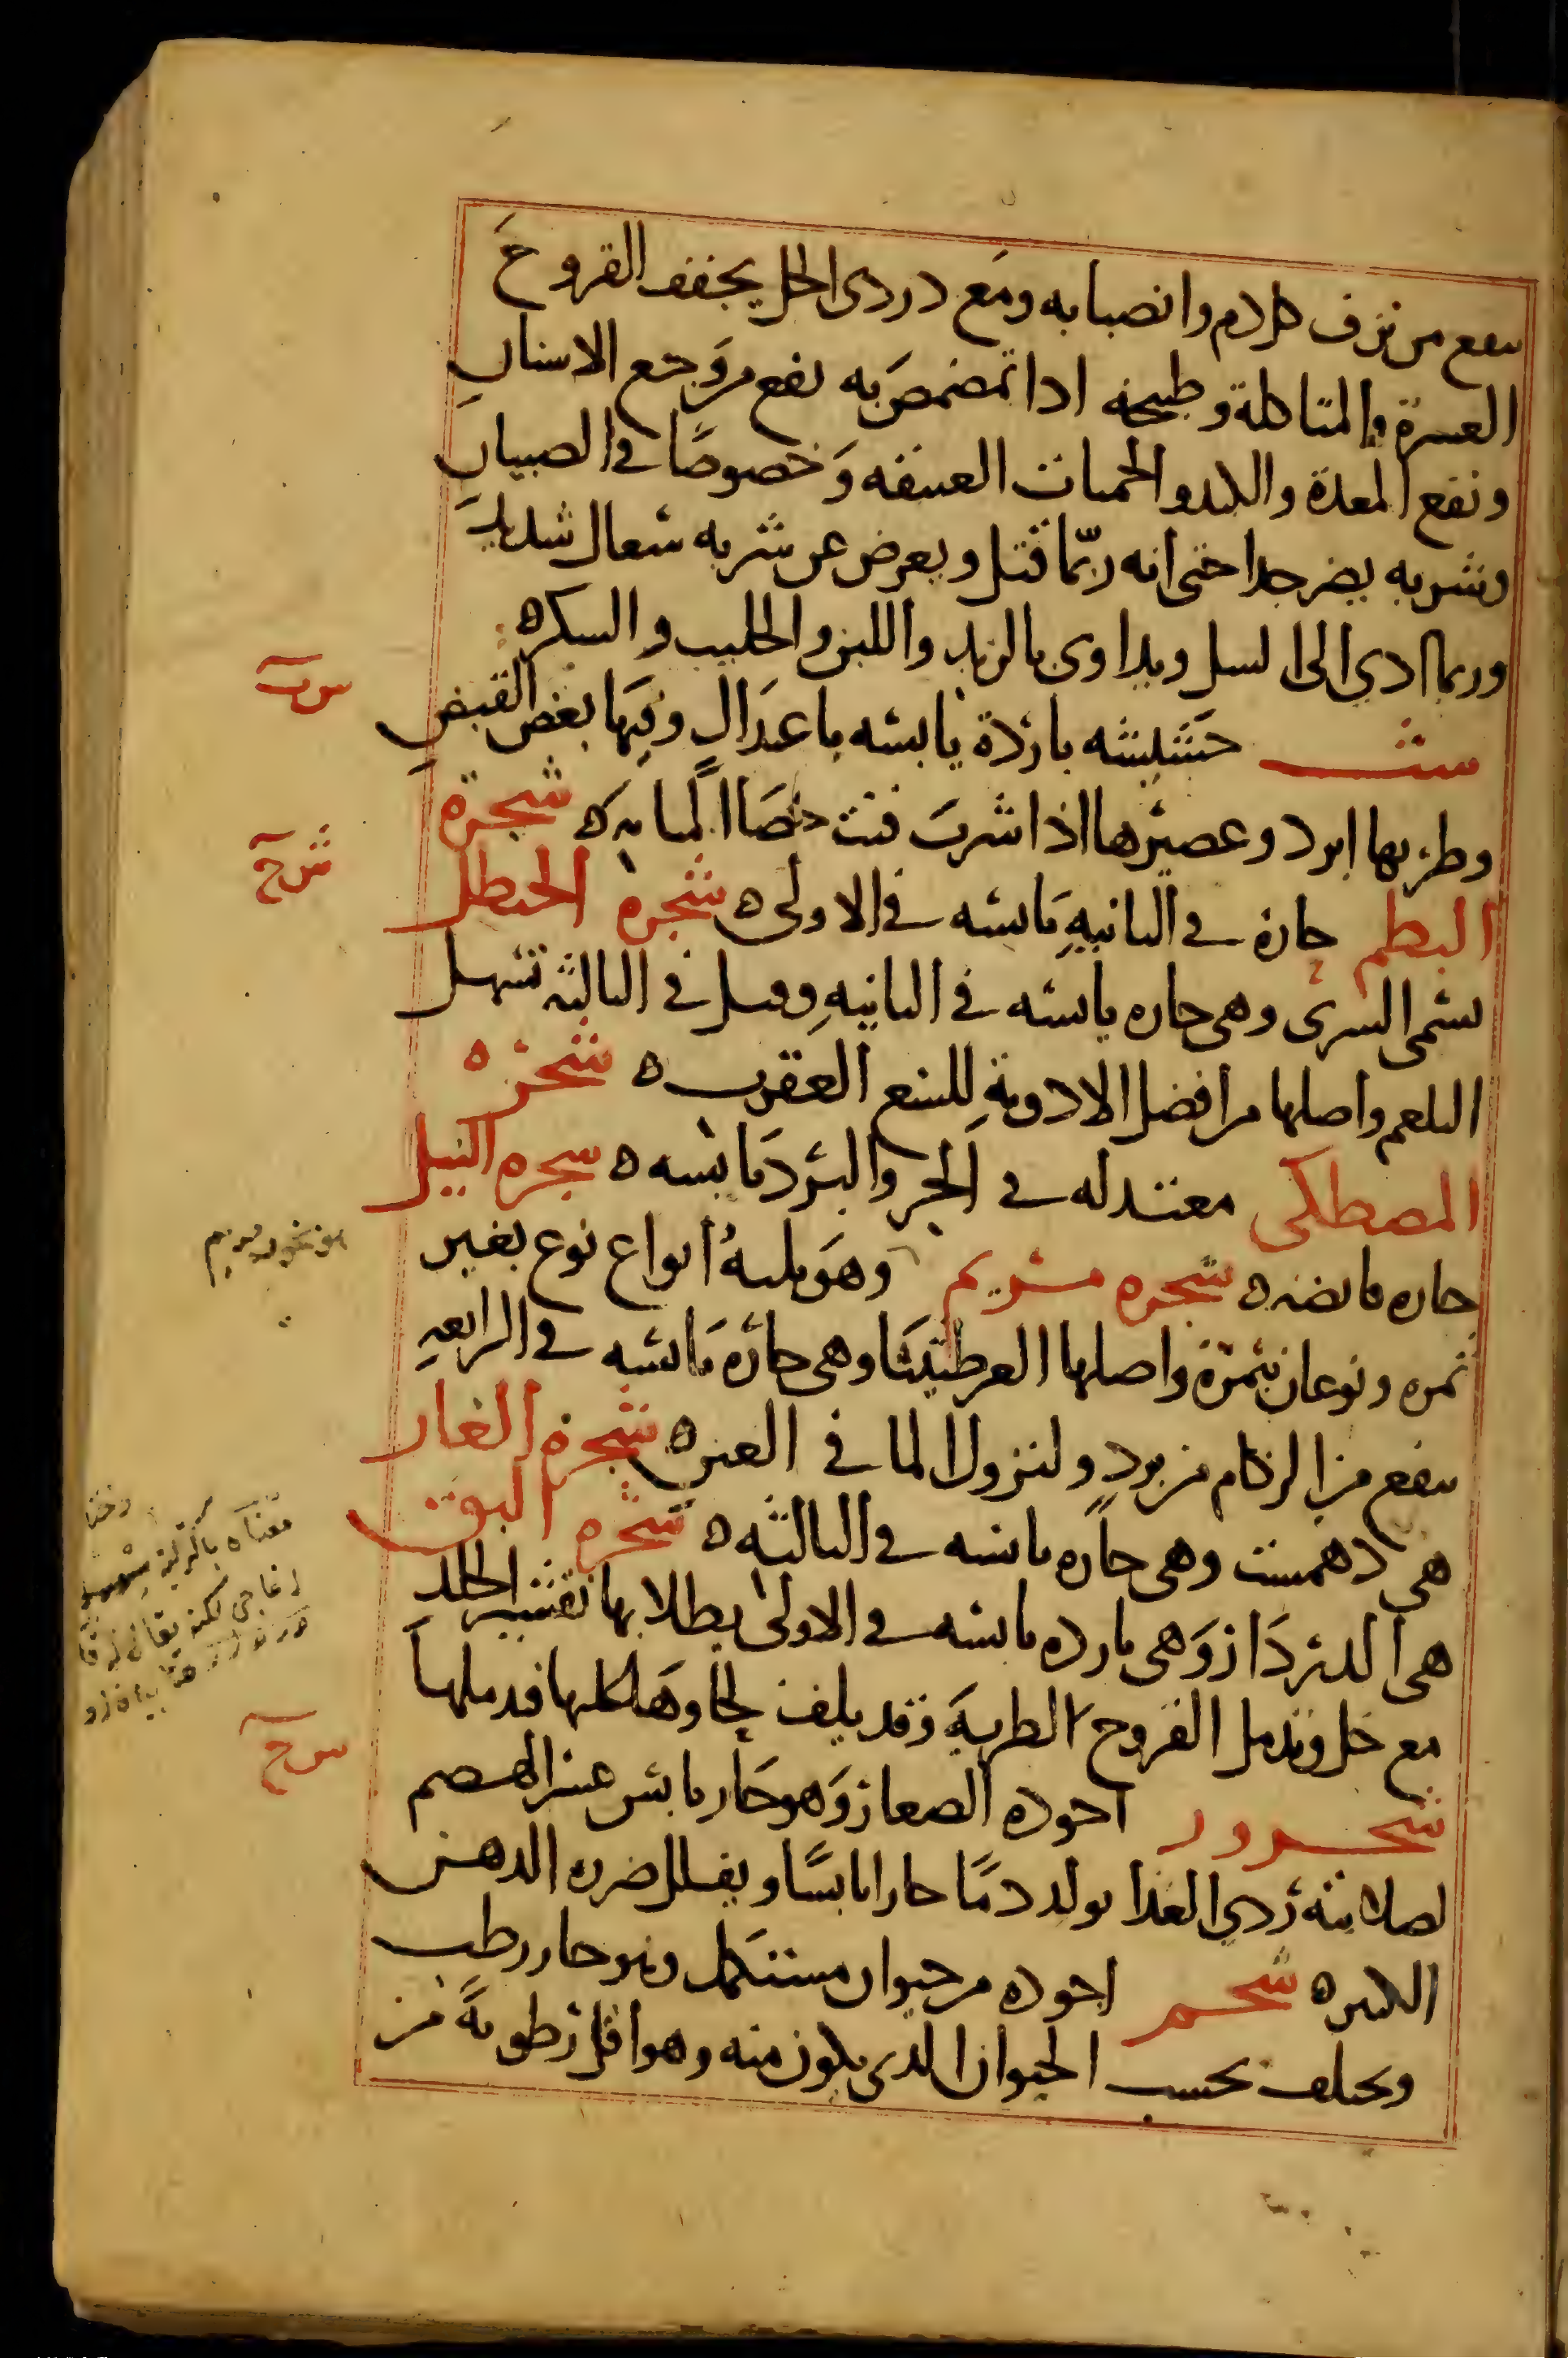 ينفع من نزف كل دم وانصبابه ومع دردى الخل يجفف القروح
العسرة والمتاكلة وطبيخه اذا تمضمض به نفع من وجع الاسنان
ونفع المعدة والكبد والحميات العتيقه وخصوصا في الصبيان
وشربه يضر جدا حتى انه ربما قتل ويعرض عن شربه سعال شديد
وربما ادي الى السل ويداوى بالزبد واللبن والحليب والسكر ه
شث حشيشه باردة يابسه باعتدال وفيها بعض القبض
سب
وطريها ابرد وعصيرها اذا شرب فتت حصا المثانه ه شجرة
البطم حارة في الثانيه يابسه في الاولى ه شجره الحنظل
شج
تسمى السرى وهى حاره يابسه في الثانيه وقيل في الثالثه تسهل
البلغم واصلها من افضل الادوية للسع العقرب ه شجره
المصطكى معتدله في الحر والبرد يابسه ه شجره النيل
حاره قابضه ه شجره مريم وهو ثلثة انواع نوع بغير
ثمره ونوعان بثمرة واصلها العرطنيثا وهى حاره يابسه في الرابعه
ينفع من الزكام من برد ولنزول الما في العين ه شجرة الغار
هى دهمست وهى حاره يابسه في الثالثه ه شجره البق
هى الدردار وهى بارده يابسه في الاولى يطلا بها تقشير الجلد
مع خل وتدمل القروح الطرية وقد يلف لحاوها كلها فيدملها
شحرور اجوده الصغار وهو حار يابس عسر الهضم
سح
لصلابته ردي الغذا يولد دما حارا يابسا ويقلل ضرره الدهن
الكثير ه شحم اجوده من حيوان مستكمل وهو حار رطب
ويختلف بحسب الحيوان الذى يكون منه وهو اقل رطوبة من